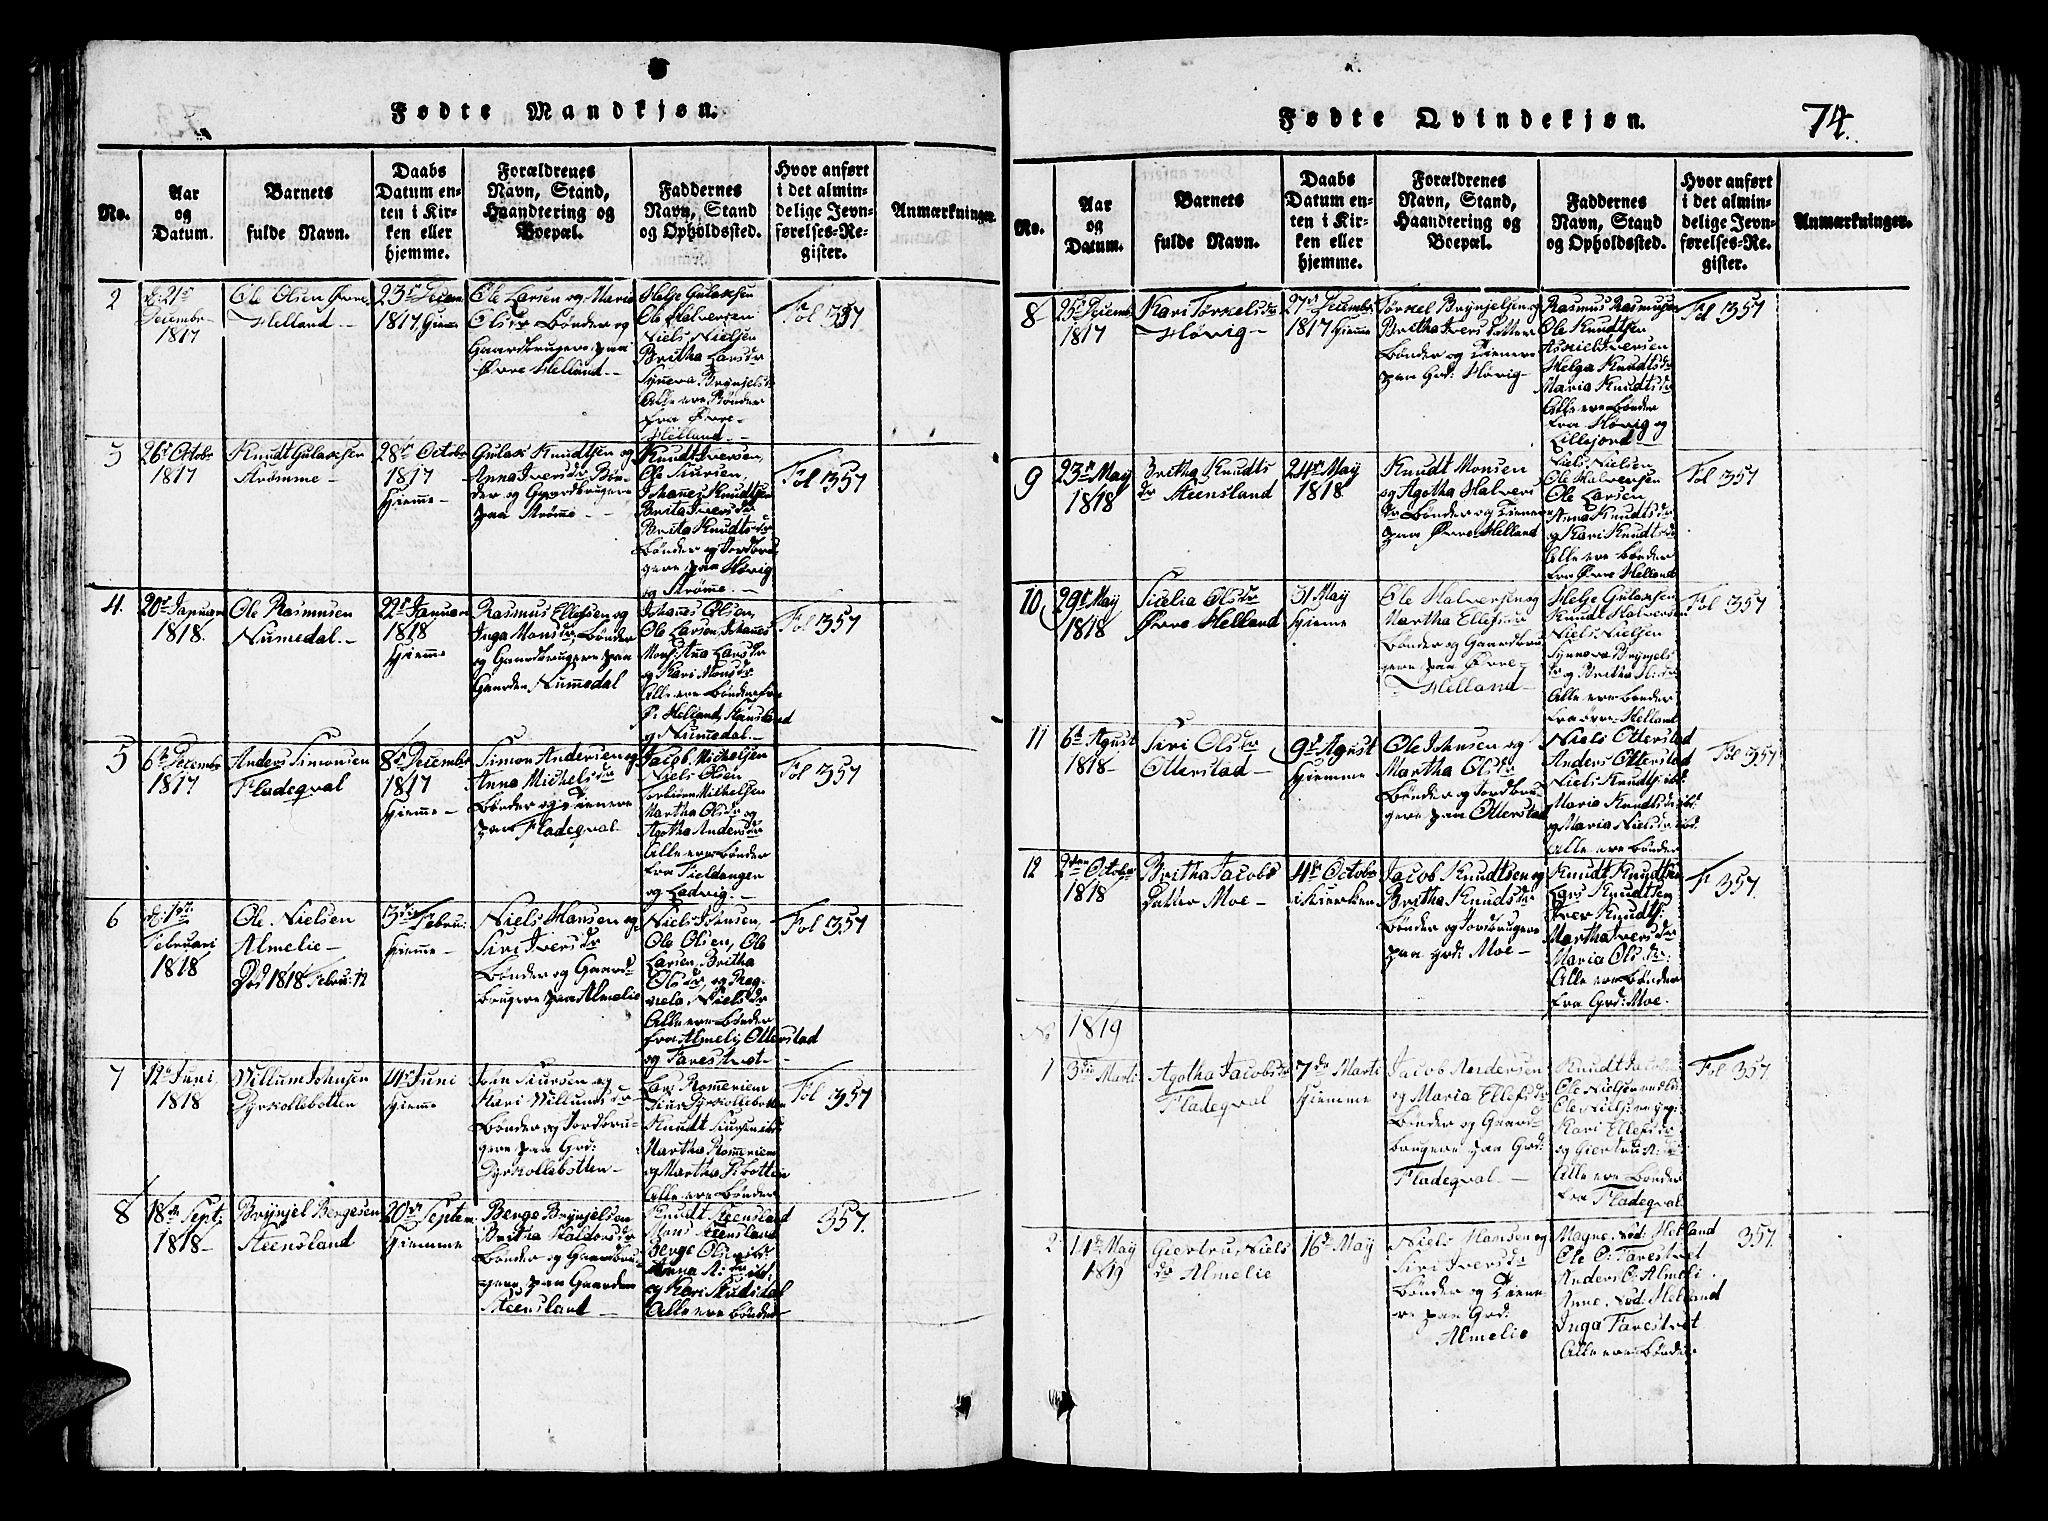 Fødte Mandkjøn.
No.
Aar
og
Datum.
Barnets
fulde Navn.
Daabs
Datum en-
ten i Kir-
ken eller
hjemme.
Forældrenes
Navn, Stand,
Haandtering og
Boepæl.
Faddernes
Navn, Stand
og Opholdssted.
Hvor anført
i det almin-
delige Jevn-
førelses-Re-
gister.
Anmærkninger.
2
d: 21de
Decembr
1817
Ole Olsen Øvre
Helland
23de Decem
1817 Hiemme
Ole Larsen og Maria
Olsdr Bønder og
Gaardbrugere paa
Øvre Helland
Helje Gulaksen
Ole Halversen
Niels Nielsen
Britha Larsdr
Synneva Brynjelsd
Alle ere Bønder
fra Øvre
Helland
Fol 357
3
26de Octobr
1817
Knudt Gulaksen
Strømme
28de Octobr
1817
Hiemme
Gulak Knudtsen og
Anna Iversdr Bøn-
der og Gaardbrugere
paa Strømme
Knudt Iversen,
Ole Siursen
Johanes Knudtsen
Brita Iversdr
Brita Knudtsdr
Bønder og Jordbru
gere paa Høvig
og Strømme
Fol 357
4.
20de Januar
1818.
Ole Rasmusen
Numedal
22de Januar
1818
Hiemme
Rasmus Ellefsen og
Inga Monsdr Bønder
og Gaardbrugere paa
Gaarden Numedal
Johanes Olsen,
Ole Larsen, Johannes
Mons: Ana Larsdr
og Kari Monsdr
Alle ere Bønder fra
Ø: Helland, Stensland
og Numedal
Fol 357
5
6te Decembr
1817
Anders Simonsen
Fladeqval
8de Decembr
1817
Hiemme
Simon Andersen og
Anna Michelsdr
Bønder og Tienere
paa Fladeqval
Jacob Michelsen
Niels Olsen
Torbiørn Michelsen
Martha Olsdr og
Agotha Andersdr
Alle ere Bønder
fra Fieldanger
og Ladvig
Fol 357
6
d: 1ste
Februari
1818
Ole Nielsen
Almelie
Død 1818 Febru: 12
3de Febru:
Hiemme
Niels Hansen og
Siri Iversdr
Bønder og Gaard-
brugere paa Almelie
Niels Johnsen,
Ole Olsen, Ole
Larsen, Britha
Olsdr, og Rag-
nela Nielsdr
Alle ere Bønder
fra Almeli, Otterstad
og Farestvet
Fol 357
7
12te Juni
1818
Willum Johnsen
Dyrkollebotten
14de Juni
Hiemme
John Siursen og
Kari Willumsdr
Bønder og Jordbru-
gere paa Grd:
Dyrkollebotten
Lars Romeriem
Siur Dyrkollebotten
Knudt Siursen ibd
Martha Romeriem
og Martha D:botten
Alle ere Bønder
Fol 357
8
18de Sept:
1818
Brynjel Bergesen
Steensland
20de Septem
Hiemme
Berge Brynjelsen
Britha Haldorsdr
Bønder og Gaardbru-
gere paa Gaarden
Steensland
Knudt Steensland
Mons Steensland
Berge Ols: ibd:
Anna A:dr ibd:
og Kari Stulsdal
Alle ere Bønder
357.
Fødte Qvindekjøn.
74.
No.
Aar
og
Datum.
Barnets
fulde Navn.
Daabs
Datum en-
ten i Kir-
ken eller
hjemme.
Forældrenes
Navn, Stand,
Haandtering og
Boepæl.
Faddernes
Navn, Stand
og Opholdssted.
Hvor anført
i det almin-
delige Jevn-
førelses-Re-
gister.
Anmærkninger.
8
25de Decembr
1817
Kari Torkelsdr
Høvig
27de Decembr
1817 Hiemme
Torkel Brynjelsen og
Britha Ivers Datter
Bønder og Tienere
paa Grd: Høvig
Rasmus Rasmusen
Ole Knudtsen
Askield Iversen
Helga Knudtsdr
Maria Knudtsdr
Alle ere Bønder
fra Høvig og
Lillejord
Fol 357
9
23de May
1818
Britha Knudts
dr Steensland
24de May
1818
Knudt Monsen
og Agotha Halvers
dr Bønder og Tienere
paa Øvre Helland
Niels Nielsen
Ole Halversen
Ole Larsen
Anna Knudtsdr
og Kari Knudtsdr
Alle ere Bønder
fra Øvre Helland
Fol 357
10
29de May
1818
Sicelia Olsdr
Øvre Helland
31 May
Hieme
Ole Halversen og
Martha Ellefsdr
Bønder og Gaardbru
gere paa Øvre
Helland
Helje Gulaksen
Knudt Halversen
Niels Nielsen
Synneva Brynjels
dr og Britha H:dr
Alle ere Bønder
fra Øvre Helland
Fol 357
11
6te Agust
1818
Siri Olsdr
Otterstad
9de Agust
Hiemme
Ole Johnsen og
Martha Olsdr
Bønder og Jordbru-
gere paa Otterstad
Niels Otterstad
Anders Otterstad
Niels Knudts: ibd:
Maria Knudtsdr ibd:
og Maria Nielsdr ibd:
Alle ere Bønder
Fol 357
12
2den Octobr
1818
Britha Jacobs
Datter Moe
4de Octobr
i Kierken
Jacob Knudtsen og
Britha Knudsdr
Bønder og Jordbrugere
paa grd: Moe
Knudt Knudtsen
Lars Knudts:
Iver Knudts:
Martha Iversdr
Maria Olsdr:
Alle ere Bønder
fra Grd: Moe
F 357.
N
1819
1
3de Marti
Agotha Jacobsdr
Fladeqval
7de Marti
Hiemme
Jacob Andersen
og Maria Ellefsdr
Bønder og Gaard-
brugere paa Grd:
Fladeqval
Knudt Jacobsen
Kari Ellefsdr
Alle ere Bønder
fra Fladeqval
Fol 357.
2
14de May
1819
Giertru Niels
dr Almelie
16de May
Niels Hansen og
Siri Iversdr
Bønder og Tiene
re paa Grd:
Almelie
Magne Nod: Helland
Ole O: Farestvet
Anders O: Almeli
Anne Nod: Helland
Inga Farestvet
Alle ere Bønder
357.